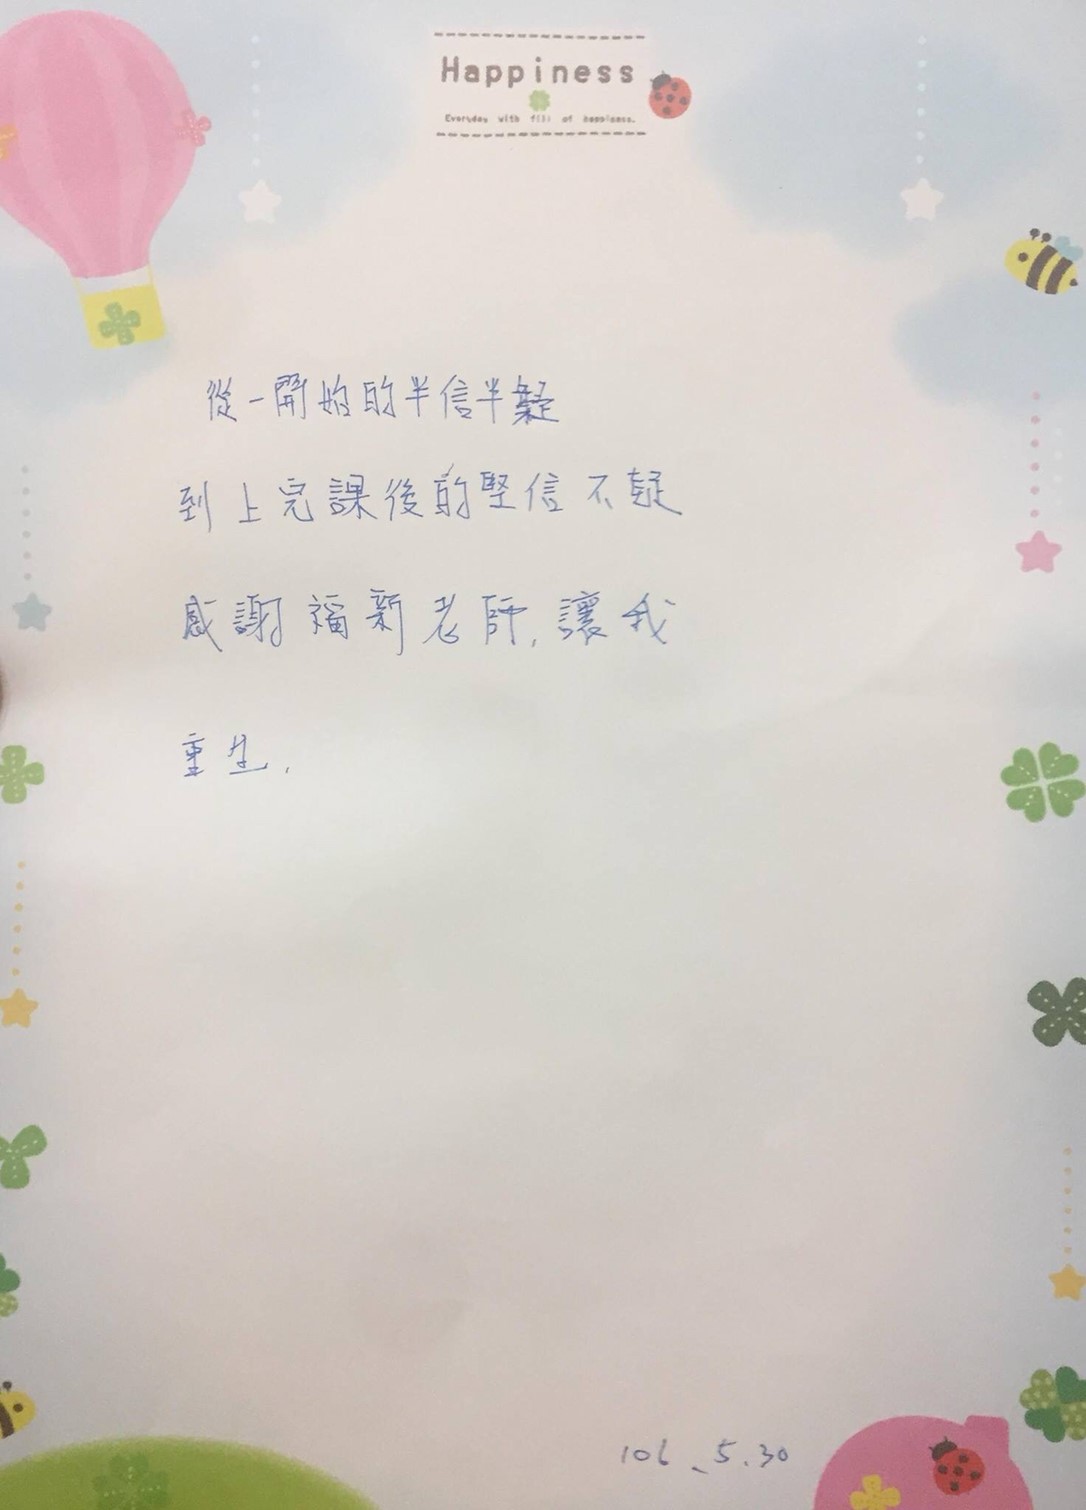 Happiness
Everyday with fill of happiness.
從一開始的半信半疑
到上完課後的堅信不疑
感謝福新老師,讓我
重生.
106.5.30